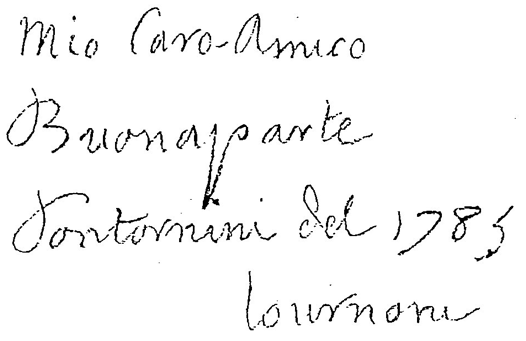 Mio Caro-Amico
Buonaparte
Pontornini del 1785
Tournone